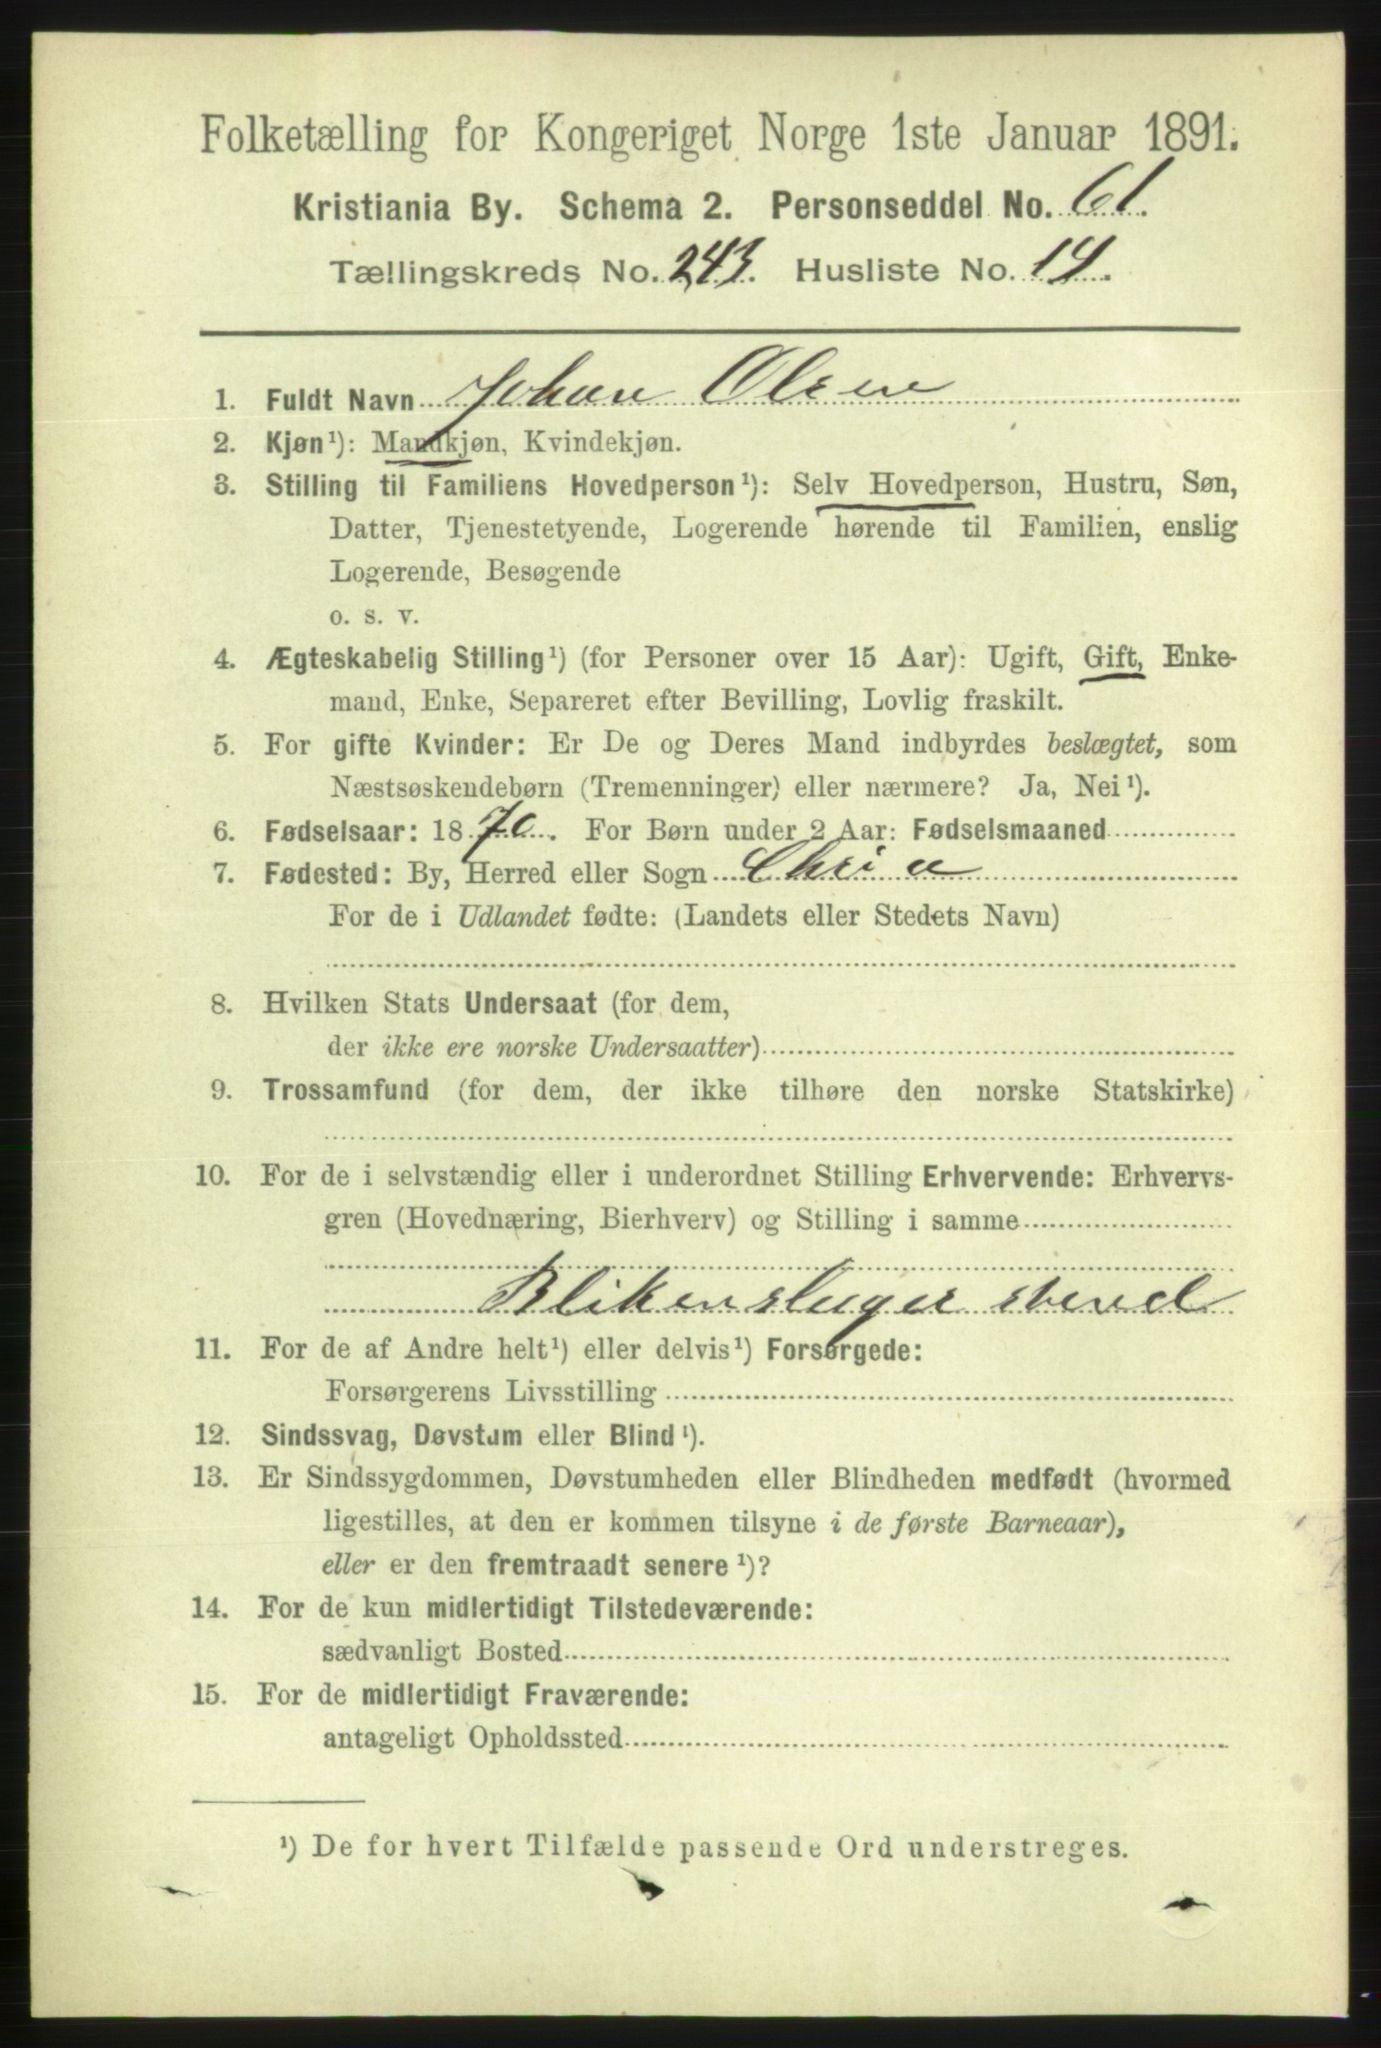 Folketælling for Kongeriget Norge 1ste Januar 1891.
Kristiania By. Schema 2. Personseddel No. 61.
Tællingskreds No. 243. Husliste No. 14.
1. Fuldt Navn Johan Olsen
2. Kjøn¹): Mandkjøn, Kvindekjøn.
3. Stilling til Familiens Hovedperson¹): Selv Hovedperson, Hustru, Søn,
Datter, Tjenestetyende, Logerende hørende til Familien, enslig
Logerende, Besøgende
o. s. v.
4. Ægteskabelig Stilling¹) (for Personer over 15 Aar): Ugift, Gift, Enke-
mand, Enke, Separeret efter Bevilling, Lovlig fraskilt.
5. For gifte Kvinder: Er De og Deres Mand indbyrdes beslægtet, som
Næstsøskendebørn (Tremenninger) eller nærmere? Ja, Nei¹).
6. Fødselsaar: 1870. For Børn under 2 Aar: Fødselsmaaned
7. Fødested: By, Herred eller Sogn Chria
For de i Udlandet fødte: (Landets eller Stedets Navn)
8. Hvilken Stats Undersaat (for dem,
der ikke ere norske Undersaatter)
9. Trossamfund (for dem, der ikke tilhøre den norske Statskirke)
10. For de i selvstændig eller i underordnet Stilling Erhvervende: Erhvervs-
gren (Hovednæring, Bierhverv) og Stilling i samme
Blikenslager svend
11. For de af Andre helt¹) eller delvis¹) Forsørgede:
Forsørgerens Livsstilling
12. Sindssvag, Døvstum eller Blind¹).
13. Er Sindssygdommen, Døvstumheden eller Blindheden medfødt (hvormed
ligestilles, at den er kommen tilsyne i de første Barneaar),
eller er den fremtraadt senere¹)?
14. For de kun midlertidigt Tilstedeværende:
sædvanligt Bosted
15. For de midlertidigt Fraværende:
antageligt Opholdssted
¹) De for hvert Tilfælde passende Ord understreges.